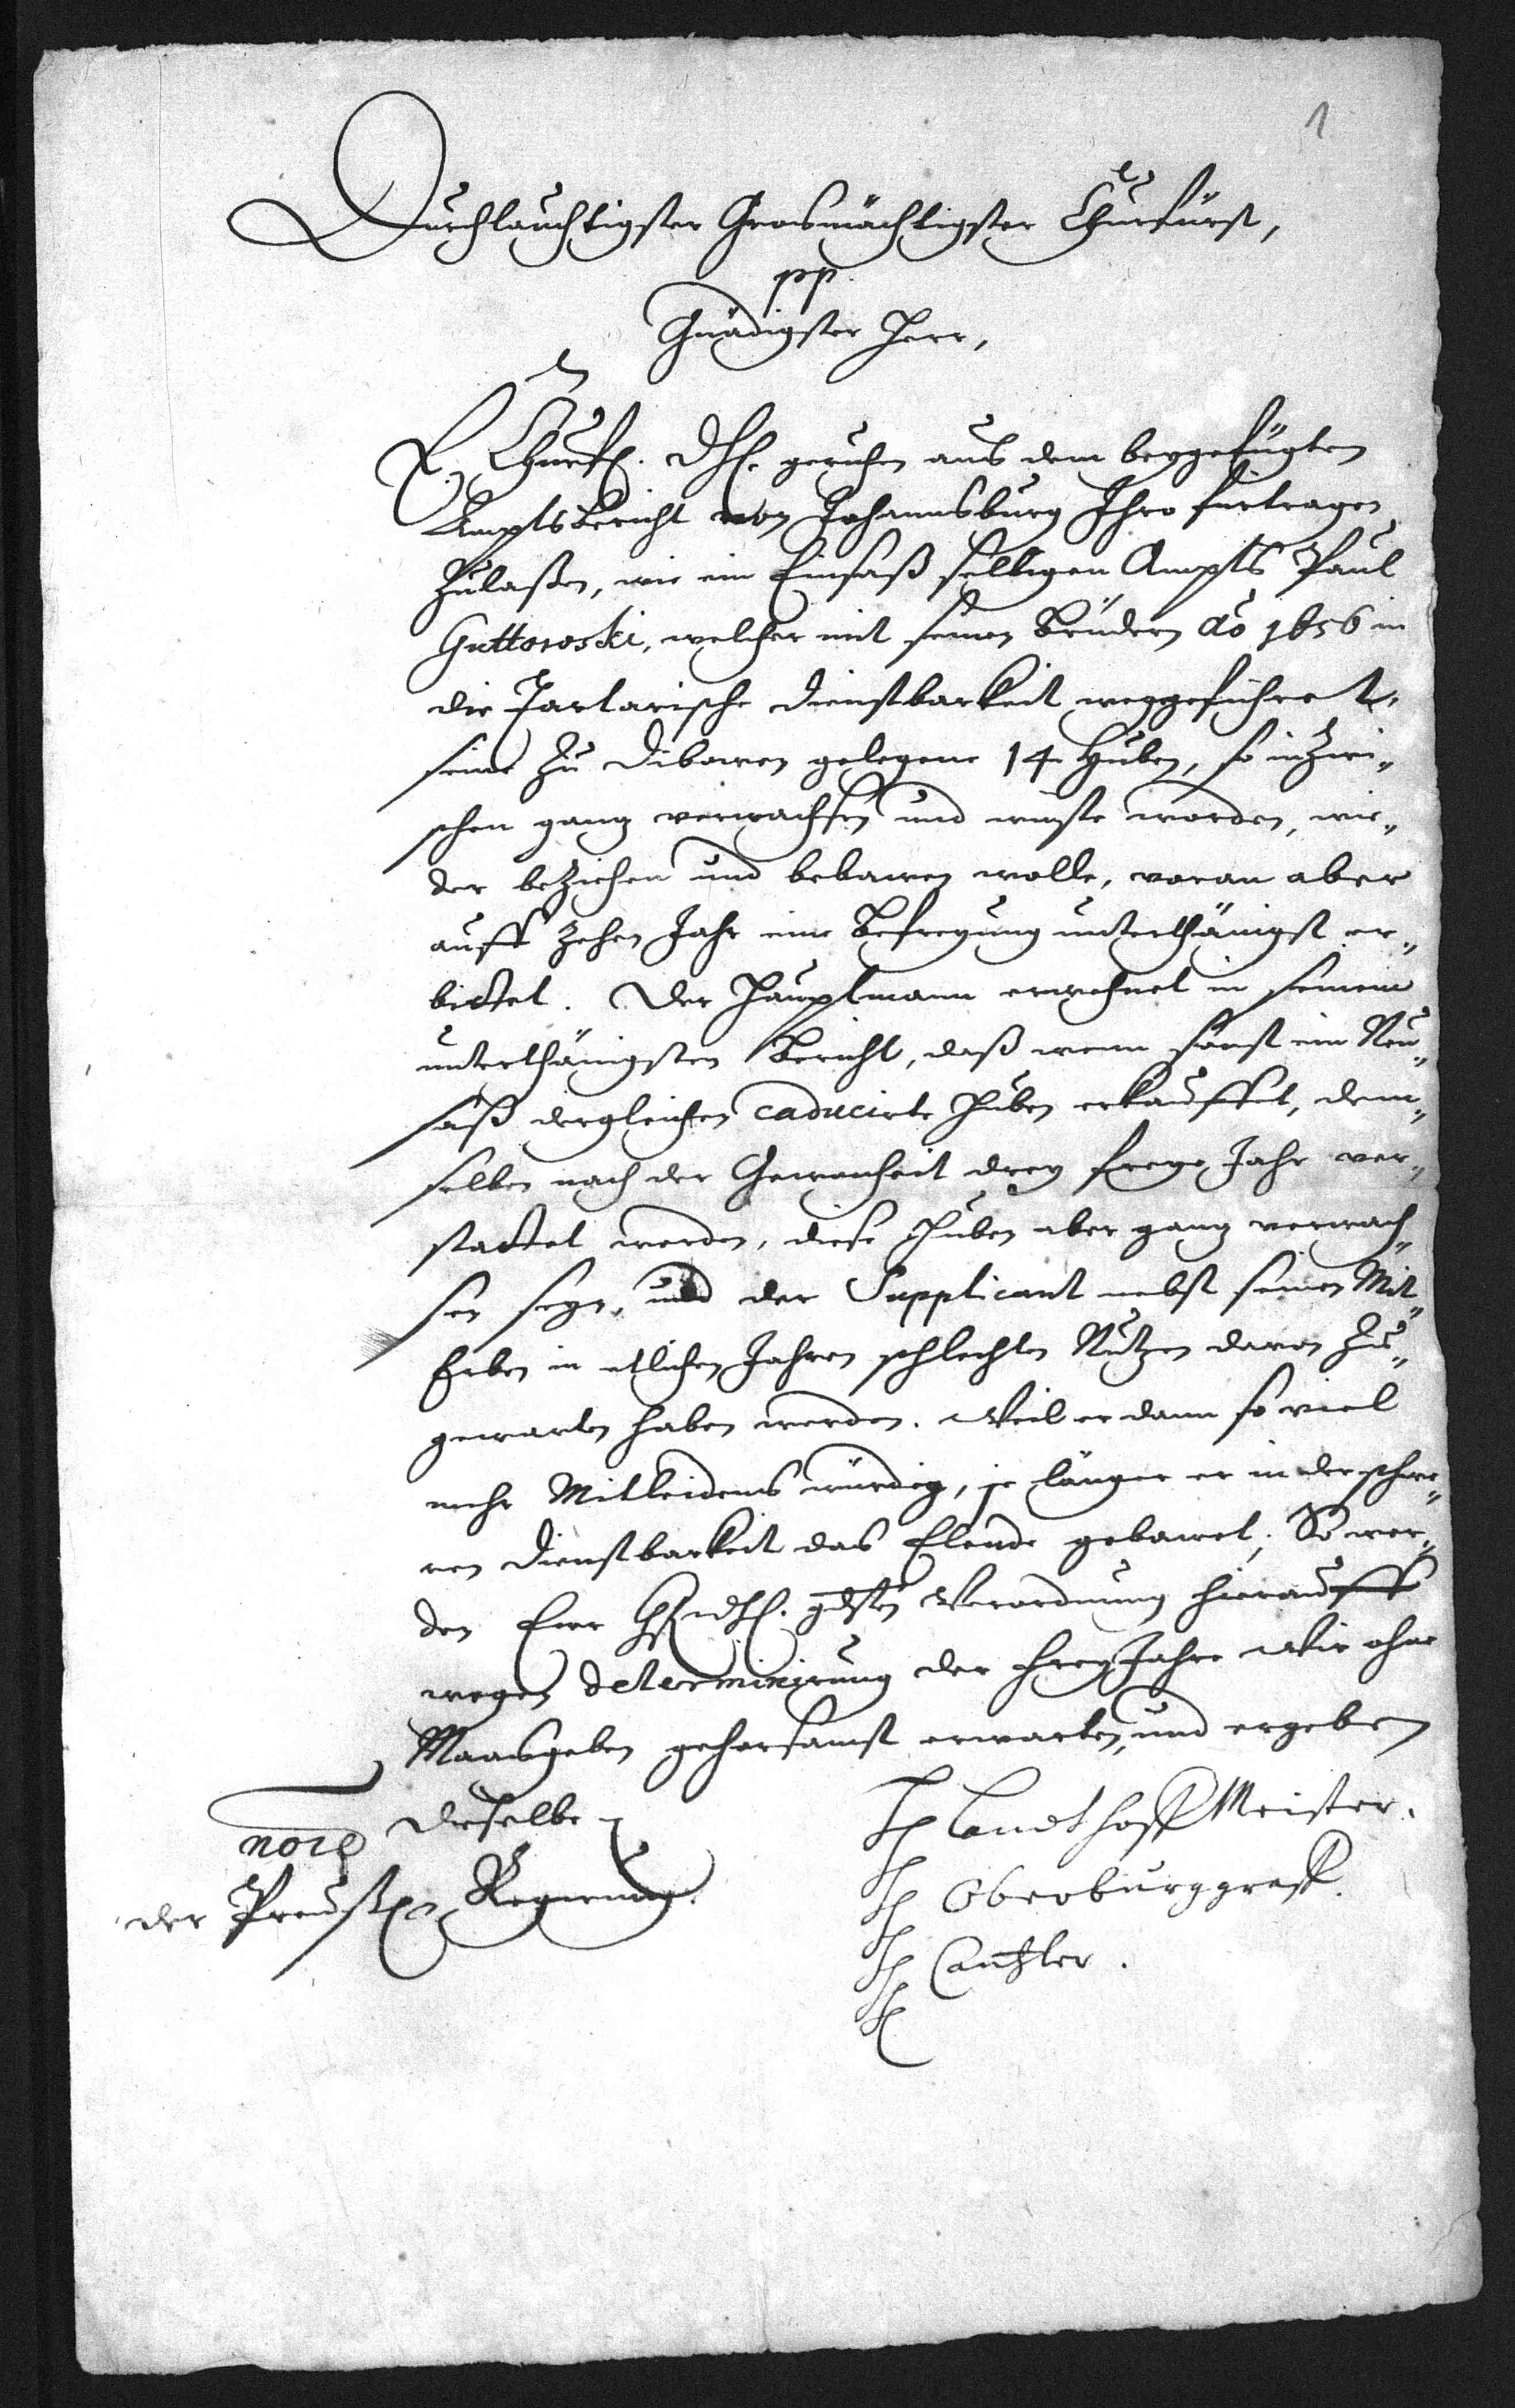 1
Durchlauchtigster Grosmächtigster Churfürst,
pp.
Gnädigster Herr,
E. Churfl. Dhl. geruhen aus dem beygefügten
Ampts Bericht von Johannsburg Ihro fürtragen
Zulaßen, wie ein Einsaß selbigen Ampts Paul
Guttowski, welcher mit seinen Brüdern Ao 1656 in
die Tartarische Dienstbarkeit weggeführet,
seine Zu Dibowen gelegene 14 Huben, so inzwi„
schen gantz verwachsen und wüste worden, wie„
der beziehen und bebawen wolle, voran aber
auff Zehen Jahr eine Befreyung unterthänigst er„
bittet. Der Hauptmann erwehnet in seinem
unterthänigsten Bericht, daß wenn sonst ein Neu„
saß dergleichen caducirte Huben erkauffet, dem„
selben nach der Gewonheit drey freye Jahr ver„
stattet werden, diese Huben aber gantz verwach„
sen seyn, und der Supplicant nebst seinen Mit„
Erben in etlichen Jahren schlechten Nutzen davon Zu„
gewarten haben werden. Weil er dann so viel
mehr Mitleidens würdig, je länger er in der schwe„
ren Dienstbarkeit das Elende gebawet; So wer„
den Ewr Chfl. Dhl. gdsten Verordnung hierauff
wegen determinirung der FreyJahre Wir ohne
Maasgeben gehorsamst erwarten, und ergeben
Dieselbe
der Preuß. Regierung.
LandthoffMeister.
Oberburggraff.
Cantzler.